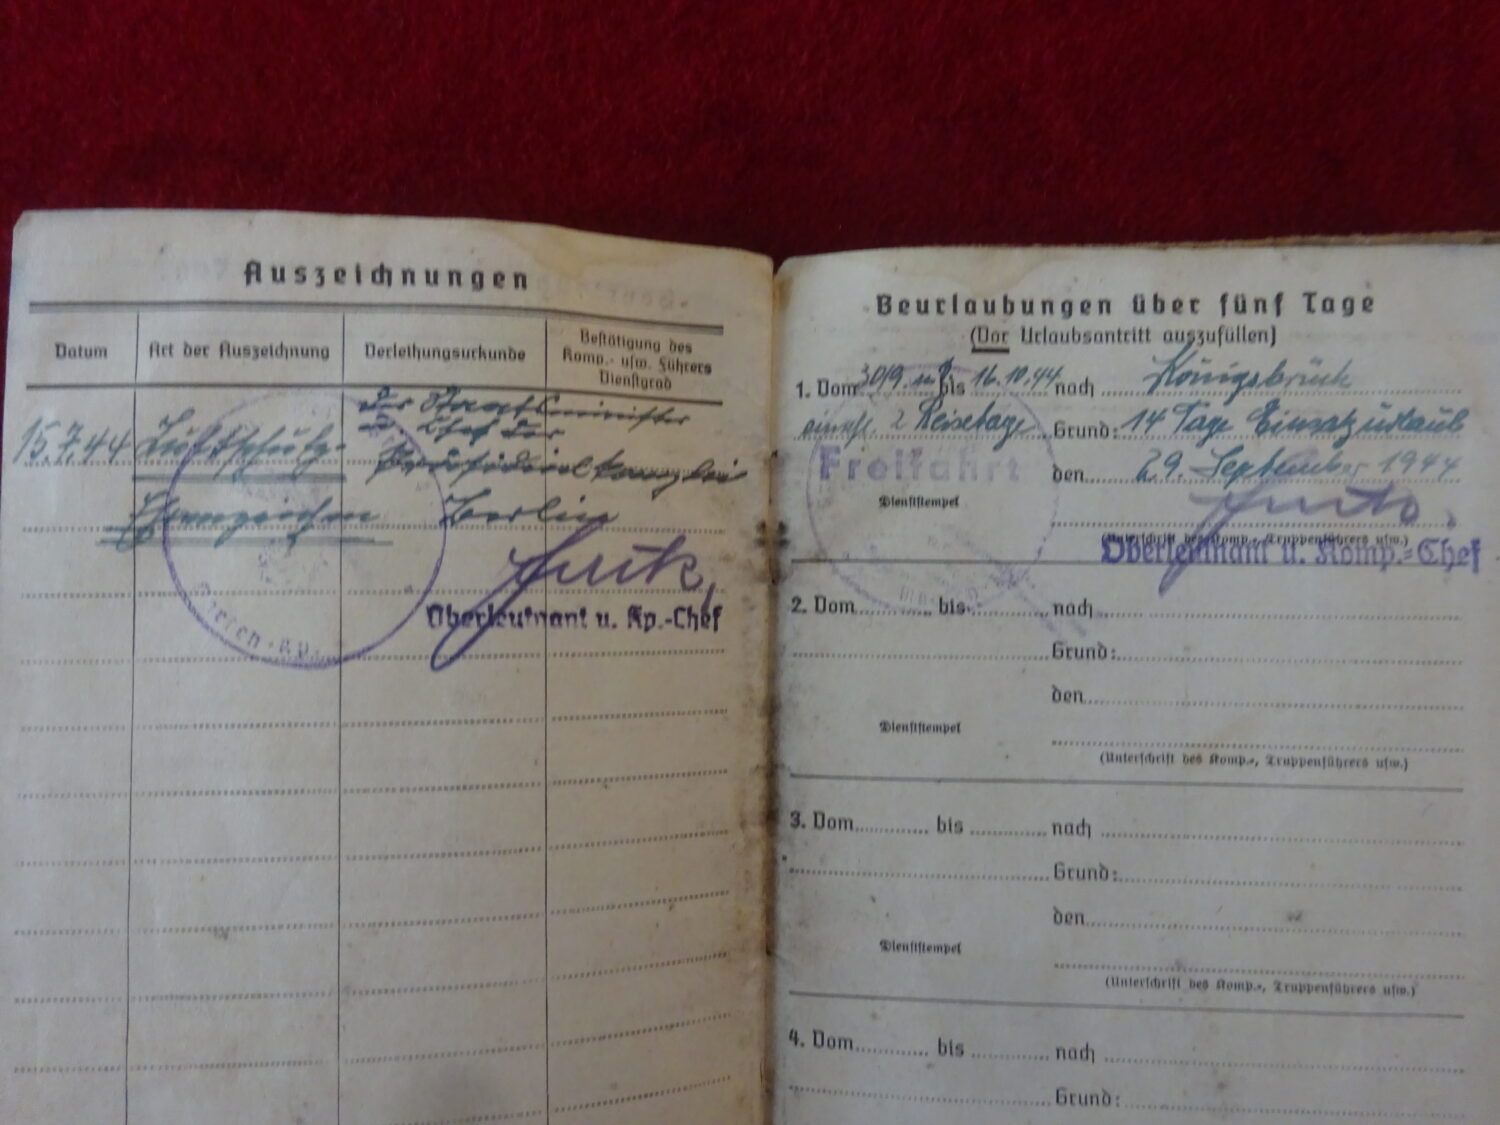 Auszeichnungen
Datum
Art der Auszeichnung
Verleihungsurkunde
Bestätigung des
Komp.- usw. Führers
Dienstgrad
15.7.44
Luftschutz-
Ehrenzeichen
der Staatsminister
u. Chef der
Präsidialkanzlei
Berlin
Oberleutnant u. Kp.-Chef
Beurlaubungen über fünf Tage
(Vor Urlaubsantritt auszufüllen)
1. Vom 30/9. bis 16.10.44 nach Königsbrück
einschl. 2 Reisetage Grund: 14 Tage Einsatzurlaub
Freifahrt
den 29. September 1944
Dienststempel
(Unterschrift des Komp.-, Truppenführers usw.)
Oberleutnant u. Komp.-Chef
2. Vom bis nach
Grund:
den
Dienststempel
(Unterschrift des Komp.-, Truppenführers usw.)
3. Vom bis nach
Grund:
den
Dienststempel
(Unterschrift des Komp.-, Truppenführers usw.)
4. Vom bis nach
Grund: